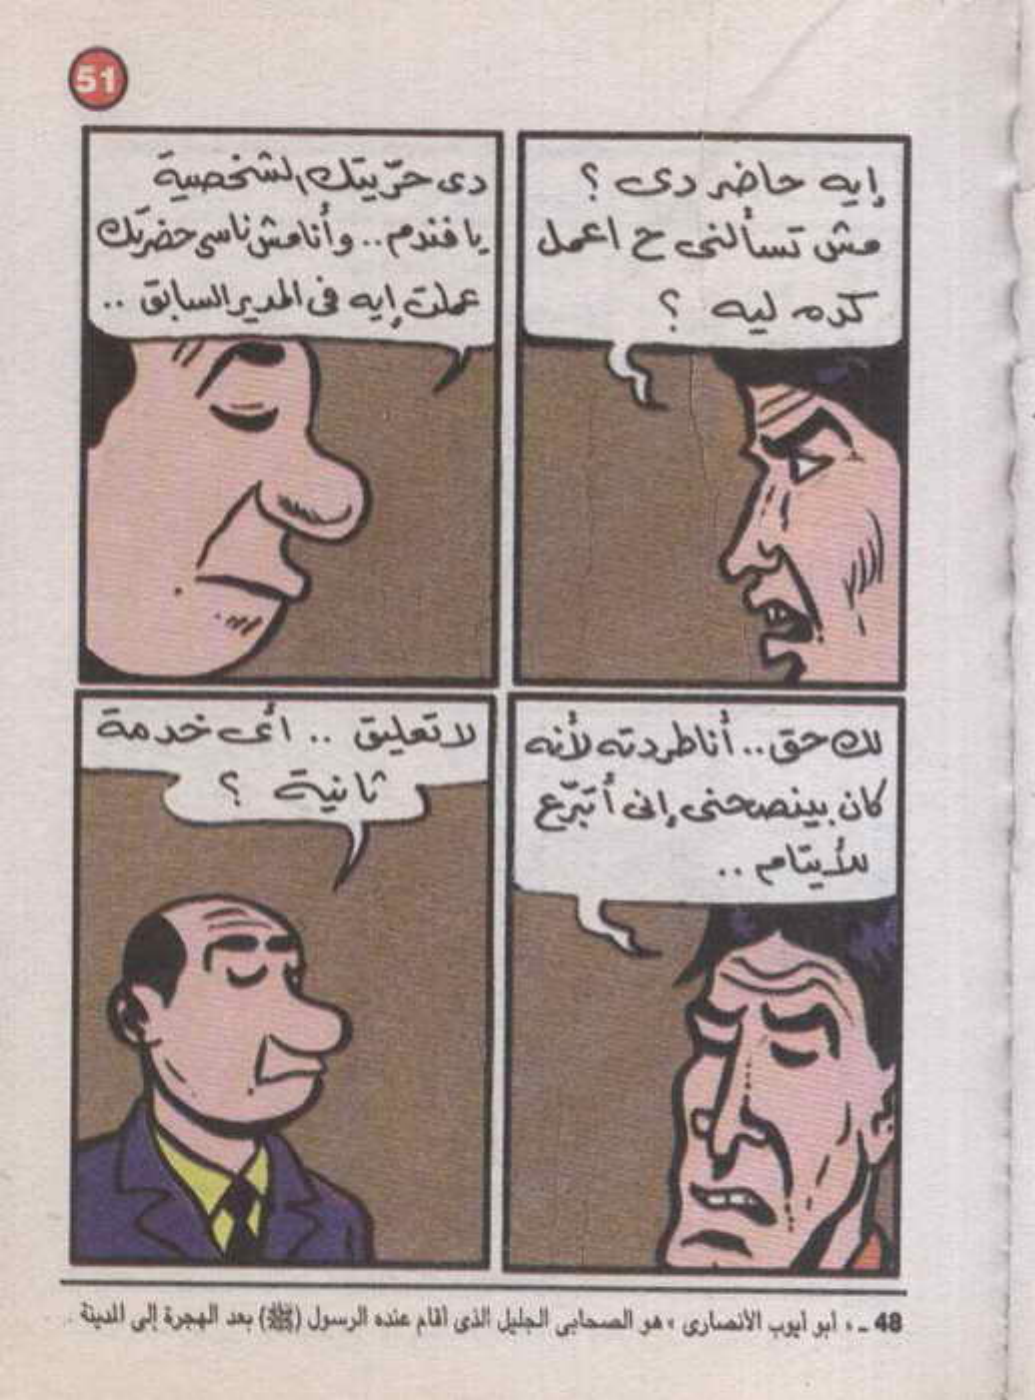 51
إيه حاضر دى ؟
مش تسألنى ح اعمل
كده ليه ؟
دى حرّيتك الشخصية
يا فندم .. وأنا مش ناسى حضرتك
عملت إيه فى المدير السابق ..
لك حق .. أنا طردته لأنه
كان بينصحنى إنى أتبرّع
للأيتام ..
لا تعليق .. أى خدمة
ثانية ؟
48 ـ « أبو أيوب الأنصارى » هو الصحابى الجليل الذى أقام عنده الرسول (ﷺ) بعد الهجرة إلى المدينة .